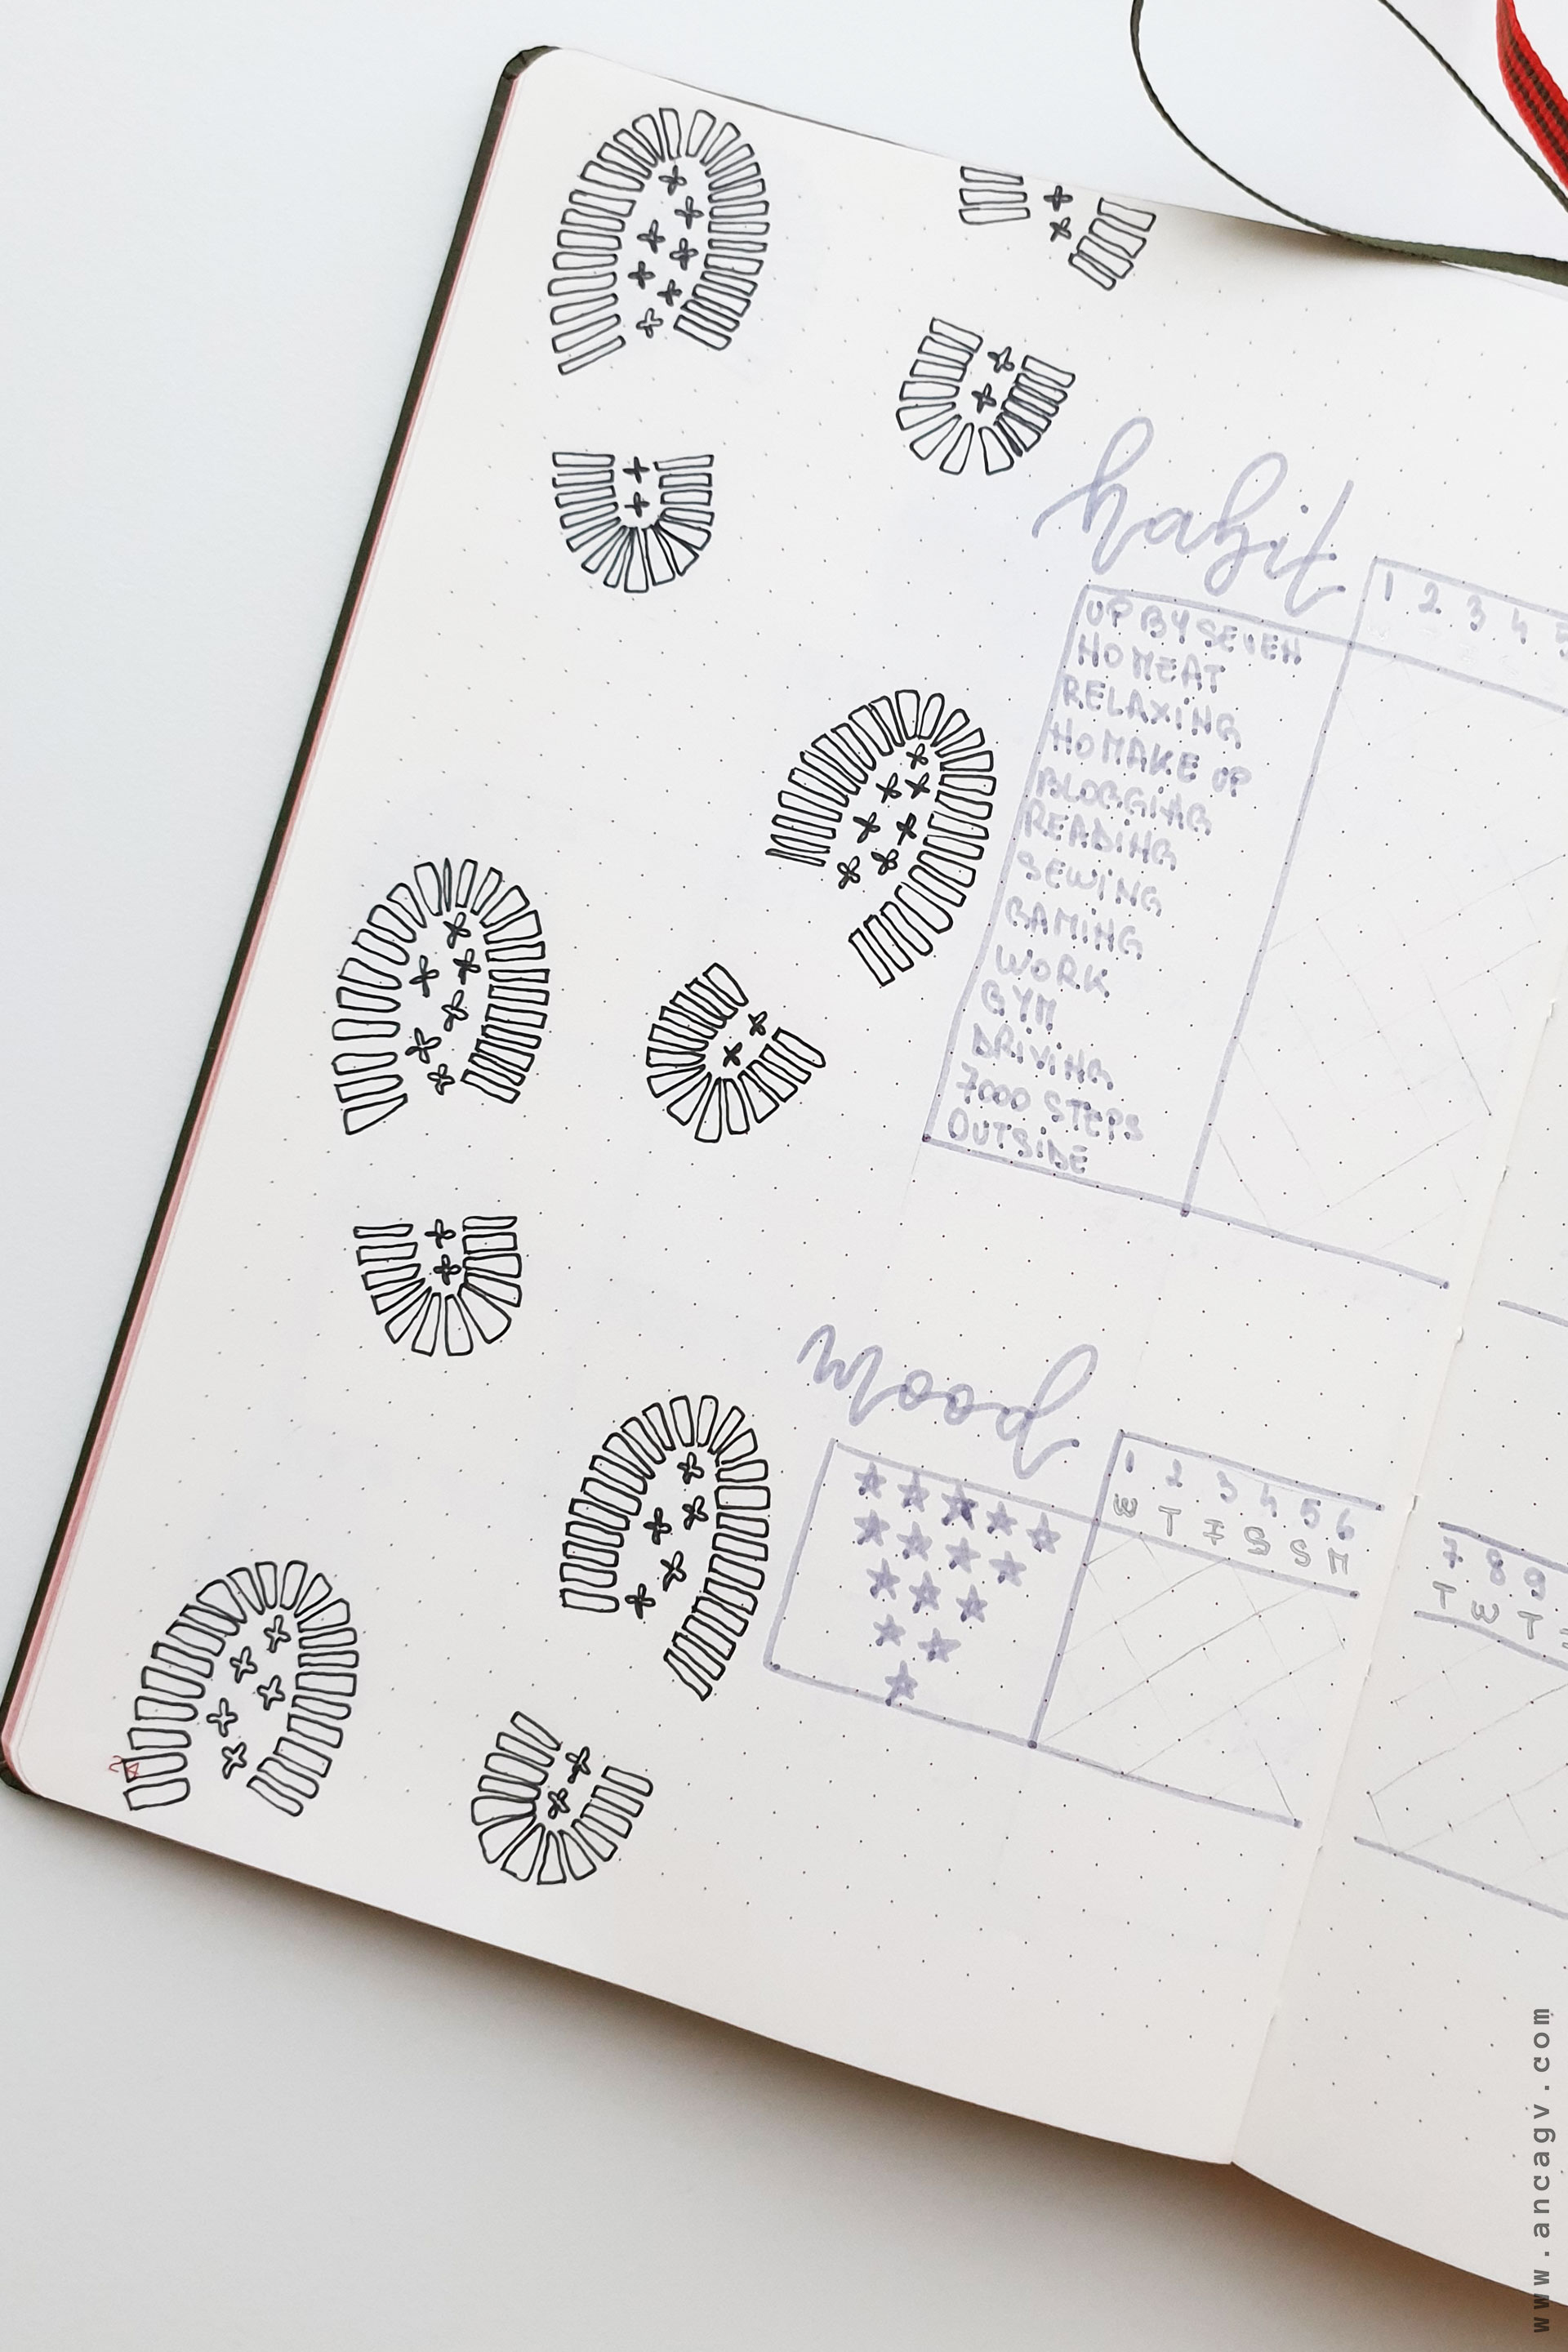 habit
1 2 3 4 5
UP BY SEVEN
NO MEAT
RELAXING
NO MAKE UP
BLOGGING
READING
SEWING
GAMING
WORK
GYM
DRIVING
7000 STEPS
OUTSIDE
mood
1 2 3 4 5 6
W T F S S M
7 8 9
T W T
www.ancagv.com